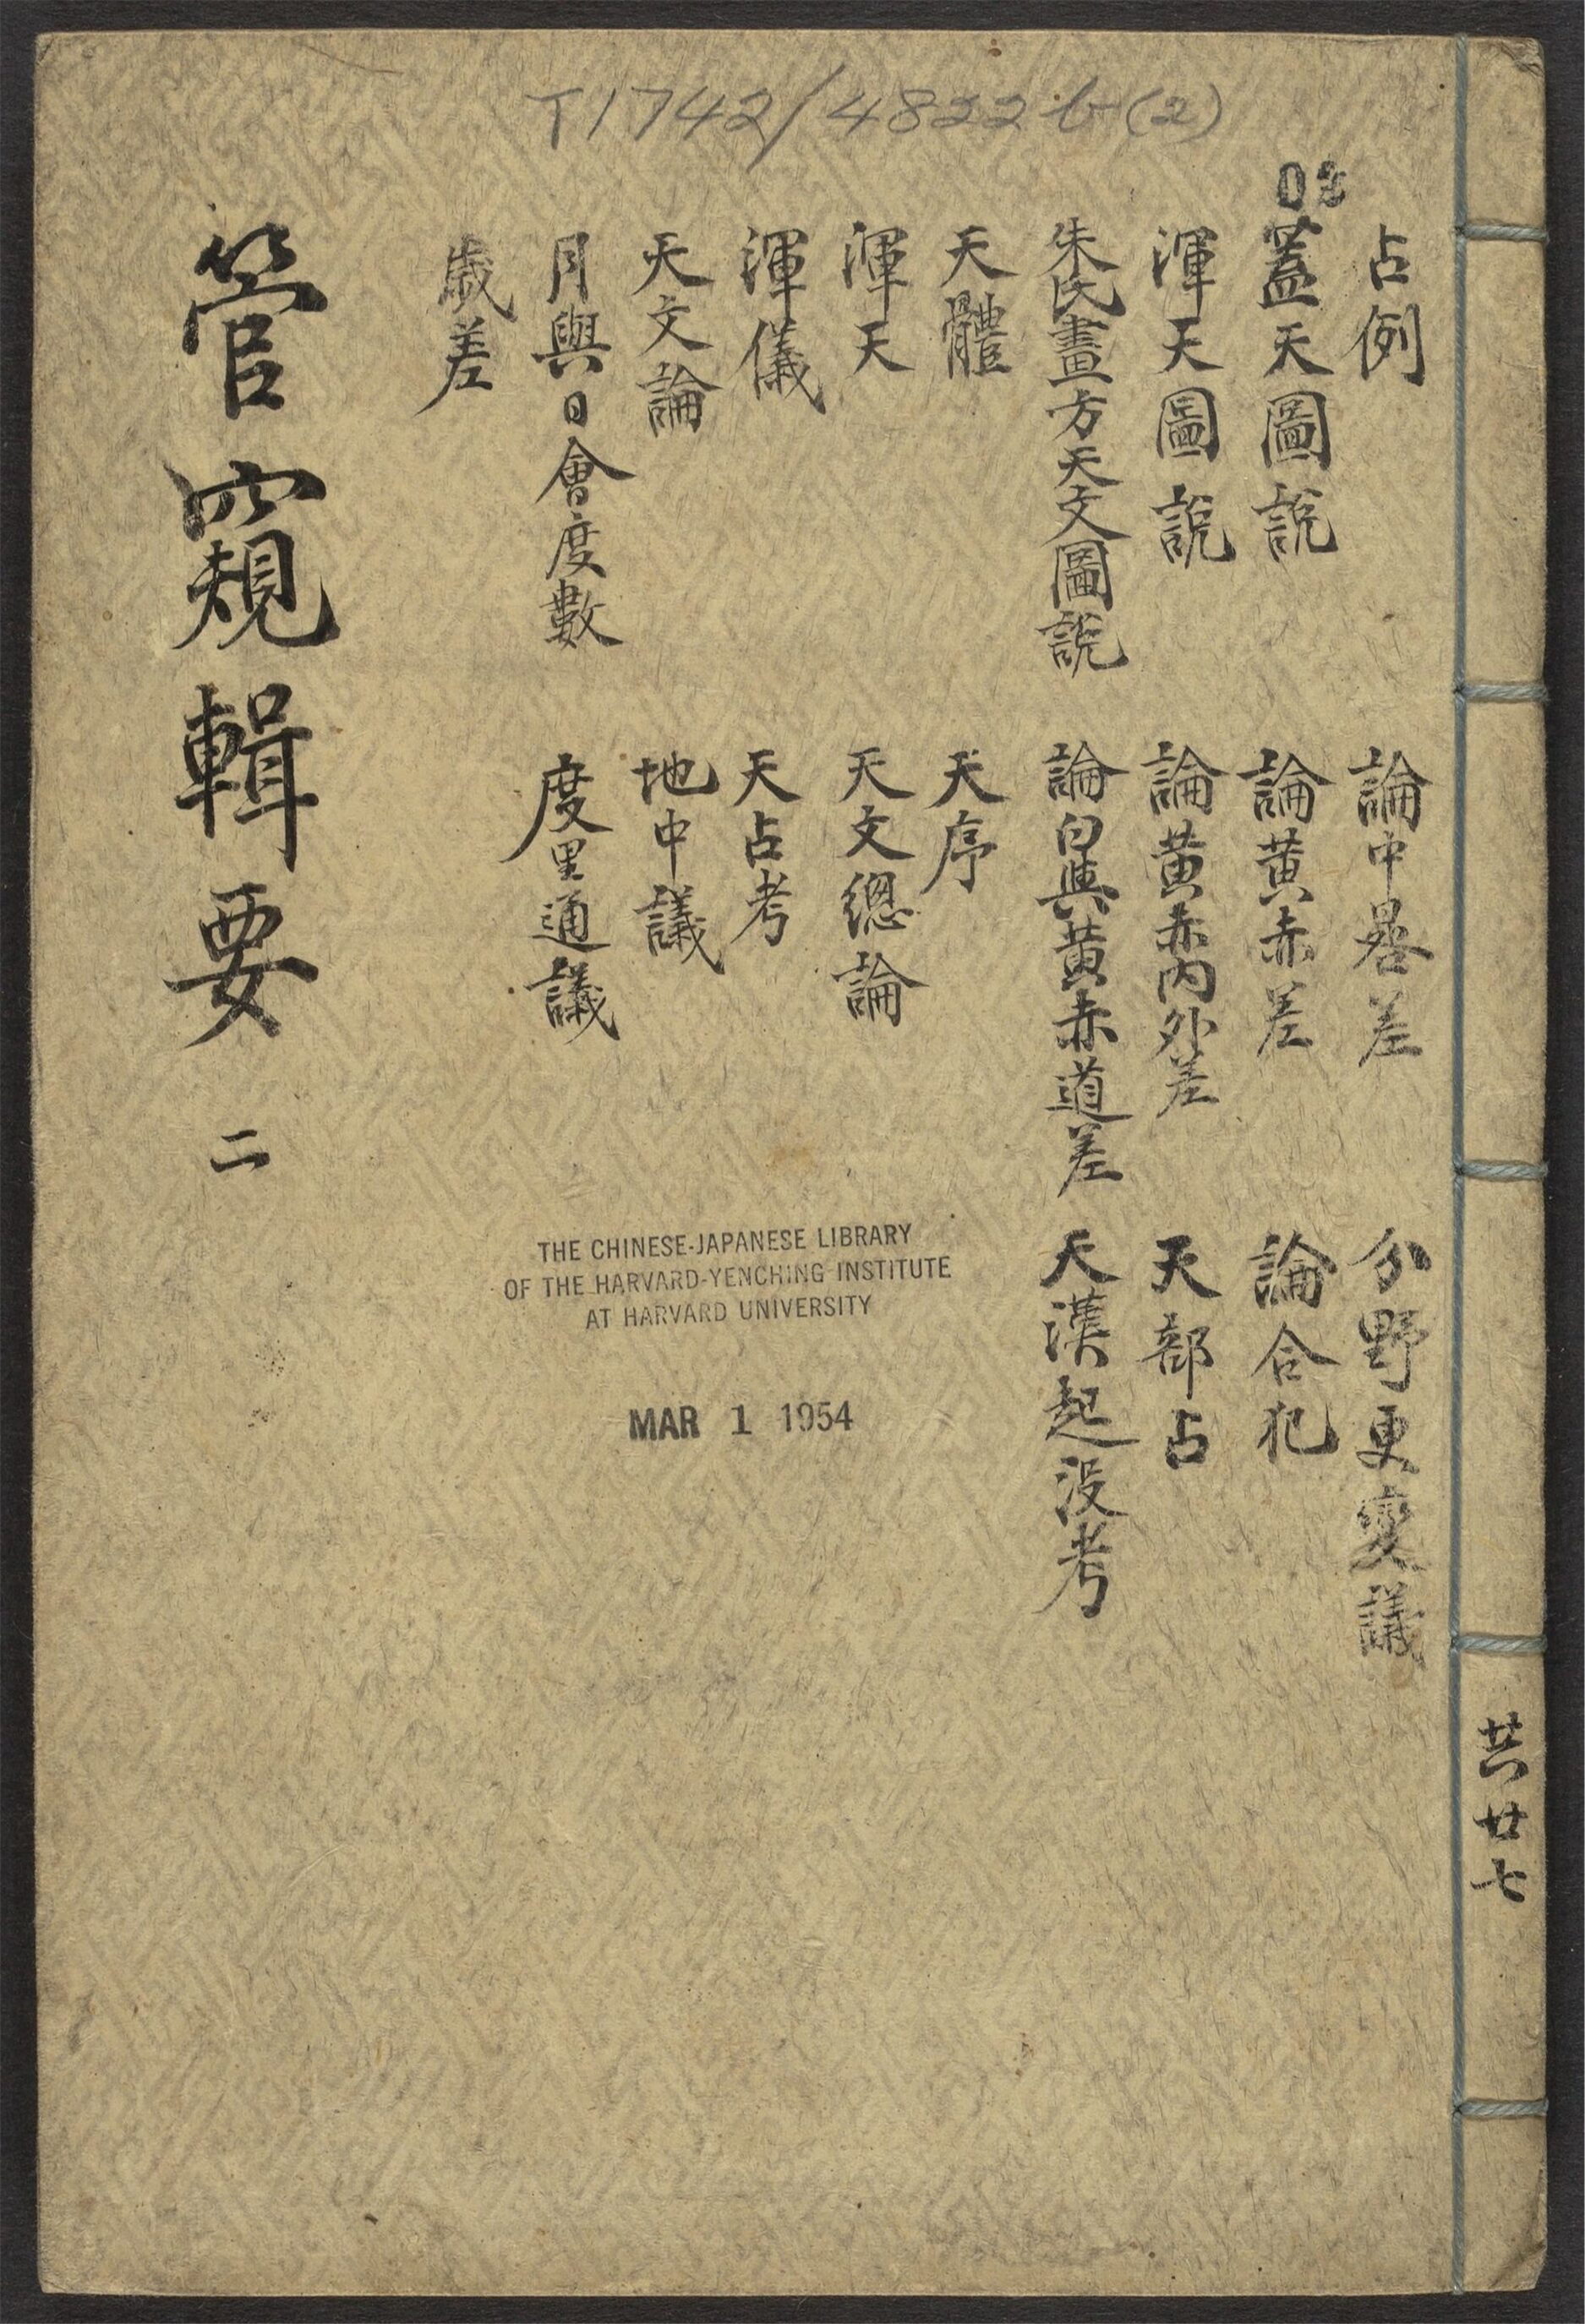 T1742/4822b(2)
02
占例
蓋天圖說
渾天圖說
朱氏畫方天文圖說
天體
渾天
渾儀
天文論
月與日會度數
歲差
論中晷差
論黃赤差
論黃赤內外差
論白與黃赤道差
天序
天文總論
天占考
地中議
度里通議
分野更變議
論合犯
天部占
天漢起没考
管窺輯要 二
THE CHINESE-JAPANESE LIBRARY
OF THE HARVARD-YENCHING INSTITUTE
AT HARVARD UNIVERSITY
MAR 1 1954
共廿七